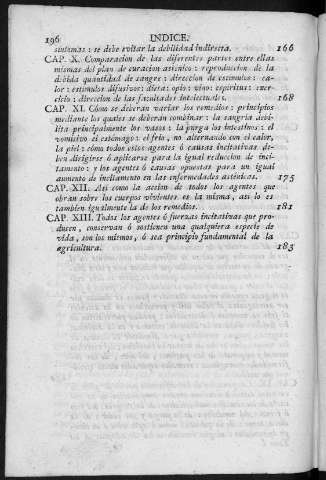 196 INDICE.
sintomas: se debe evitar la debilidad indirecta. 166
CAP. X. Comparacion de las diferentes partes entre ellas
mismas del plan de curacion asténico: reproduccion de la
debida quantidad de sangre: direccion de estímulos: ca-
lor: estímulos difusivos: dieta: opio: vino: espíritus: exer-
cicio: direccion de las facultades intelectuales. 168
CAP. XI. Cómo se deberán variar los remedios: principios
mediante los quales se deberán combinar: la sangría debi-
lita principalmente los vasos: la purga los intestinos: el
vomitivo el estómago: el frio, no alternando con el calor,
la piel: cómo todos estos agentes ó causas incitativas de-
ben dirigirse ó aplicarse para la igual reduccion de inci-
tamento: y los agentes ó causas opuestas para un igual
aumento de incitamento en las enfermedades asténicas. 175
CAP. XII. Así como la accion de todos los agentes que
obran sobre los cuerpos vivientes es la misma, así lo es
tambien igualmente la de los remedios. 181
CAP. XIII. Todos los agentes ó fuerzas incitativas que pro-
ducen, conservan ó sostienen una qualquiera especie de
vida, son los mismos, ó sea principio fundamental de la
agricultura. 183